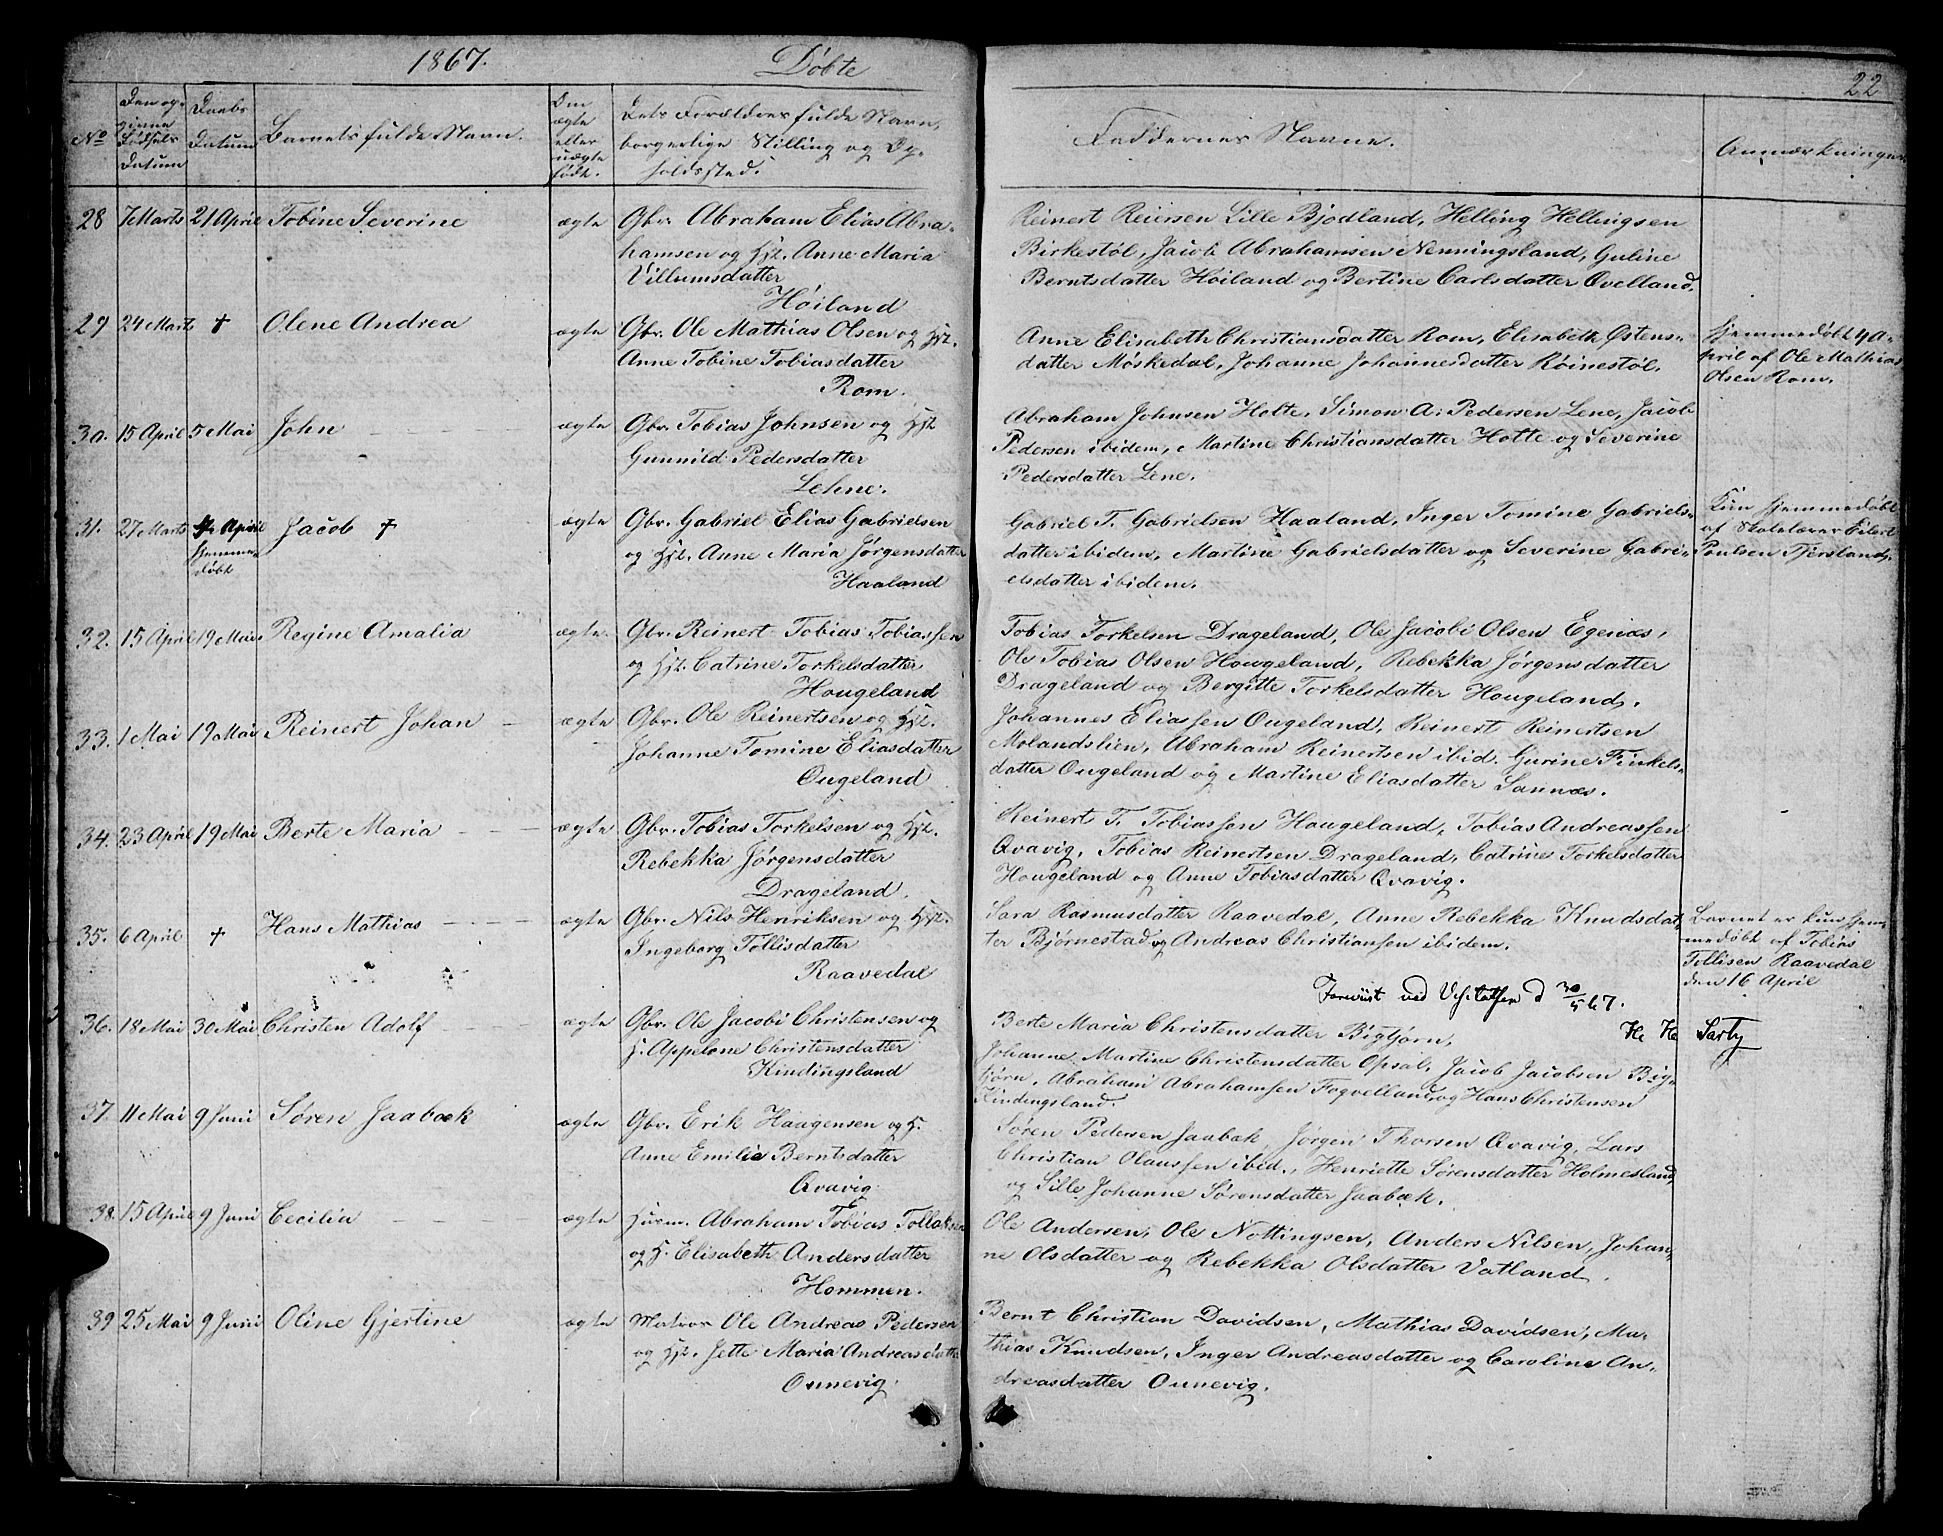 1867. Døbte
22
No
Den og-
ginne
Fødsels
Datum
Daabs
Datum
Barnets fulde Navn.
Om
ægte
eller
uægte
født.
Dets Forældres fulde Navn,
borgerlige Stilling og Op-
holdssted.
Faddernes Navne.
Anmærkninger
28 7 Marts 21 April Tobine Severine ægte Gbr. Abraham Elias Abra-
hamsen og Hst. Anne Maria
Villumsdatter
Høiland
Reinert Reiersen Lille Bjodland, Helling Hellingsen
Birkestøl, Jacob Abrahamsen Nenningsland, Guline
Berntsdatter Høiland og Bertine Carlsdatter Qvelland.
29 24 Marts † Olene Andrea ægte Gbr. Ole Mathias Olsen og Hst.
Anne Tobine Tobiasdatter
Rom.
Anne Elisabeth Christiansdatter Rom, Elisabeth Østens-
datter Møskedal, Johanne Johannesdatter Røinestøl.
Hjemmedøbt 4 A-
pril af Ole Mathias
Olsen Rom.
30. 15 April 5 Mai John ægte Gbr. Tobias Johnsen og Hst.
Gunnild Pedersdatter
Lehne.
Abraham Johnsen Holte, Simon A. Pedersen Lene, Jacob
Pedersen ibidem, Martine Christiansdatter Holte og Severine
Pedersdatter Lene.
31. 27 Marts April
Hjemme-
døbt
Jacob † ægte Gbr. Gabriel Elias Gabrielsen
og Hst. Anne Maria Jørgensdatter
Haaland
Gabriel T. Gabrielsen Haaland, Inger Tomine Gabriels-
datter ibidem, Martine Gabrielsdatter og Severine Gabri-
elsdatter ibidem.
Kun hjemmedøbt
af Skolelærer Eilert
Poulsen Tjersland.
32. 15 April 19 Mai Regine Amalia ægte Gbr. Reinert Tobias Tobiassen
og Hst. Catrine Torkelsdatter
Hougeland
Tobias Torkelsen Drageland, Ole Jacobi Olsen Egenæs,
Ole Tobias Olsen Hougeland, Rebekka Jørgensdatter
Drageland og Bergitte Torkelsdatter Hougeland.
33. 1 Mai 19 Mai Reinert Johan ægte Gbr. Ole Reinertsen og Hst.
Johanne Tomine Eliasdatter
Ougeland
Johannes Eliassen Ougeland, Reinert Reinertsen
Molandslien, Abraham Reinertsen ibid. Gurine Finkels-
datter Ougeland og Martine Eliasdatter Sannes.
34. 23 April 19 Mai Berte Maria ægte Gbr. Tobias Torkelsen og Hst.
Rebekka Jørgensdatter
Drageland.
Reinert T. Tobiassen Hougeland, Tobias Andreassen
Qvavig, Tobias Reinertsen Drageland, Catrine Torkelsdatter
Hougeland og Anne Tobiasdatter Qvavig.
35. 6 April † Hans Mathias ægte Gbr. Nils Henriksen og Hst.
Ingeborg Tollisdatter
Raavedal
Sara Rasmusdatter Raavedal, Anne Rebekka Knudsdat-
ter Bjørnestad og Andreas Christiansen ibidem.
Barnet er kun hjem-
medøbt af Tobias
Tellisen Raavedal
den 16 April
Foreviist ved Visitatsen d 30/5 67.
36. 18 Mai 30 Mai Christen Adolf ægte Gbr. Ole Jacobi Christensen og
H. Appelone Christensdatter
Kindingsland
Berte Maria Christensdatter Bigtjørn,
Johanne Martine Christensdatter Opsal, Jacob Jacobsen Big-
tjørn, Abraham Abrahamsen Fogvelland og Hans Christensen
Kindingsland.
37. 11 Mai 9 Juni Søren Jaabæk ægte Gbr. Erik Haagensen og H.
Anne Emilie Berntsdatter
Qvavig
Søren Pedersen Jaabæk, Jørgen Thorsen Qvavig, Lars
Christian Olaussen ibid., Henriette Sørensdatter Holmesland,
og Sille Johanne Sørensdatter Jaabæk.
38. 15 April 9 Juni Cecilia ægte Huusm. Abraham Tobias Tollaksen
og H. Elisabeth Andersdatter
Hommen.
Ole Andersen, Ole Nottingsen, Anders Nilsen, Johan-
ne Olsdatter og Rebekka Olsdatter Vatland.
39 25 Mai 9 Juni Oline Gjertine ægte Matros Ole Andreas Pedersen
og Hst. Jette Maria Andreasdatter
Ounevig.
Bernt Christian Davidsen, Mathias Davidsen, Ma-
thias Knudsen, Inger Andreasdatter og Caroline An-
dreasdatter Ounevig.